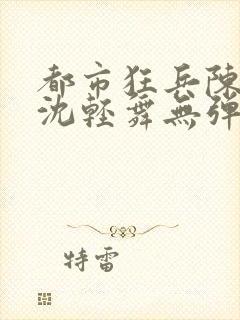 都市狂兵陳
沈輕舞無彈
特雷